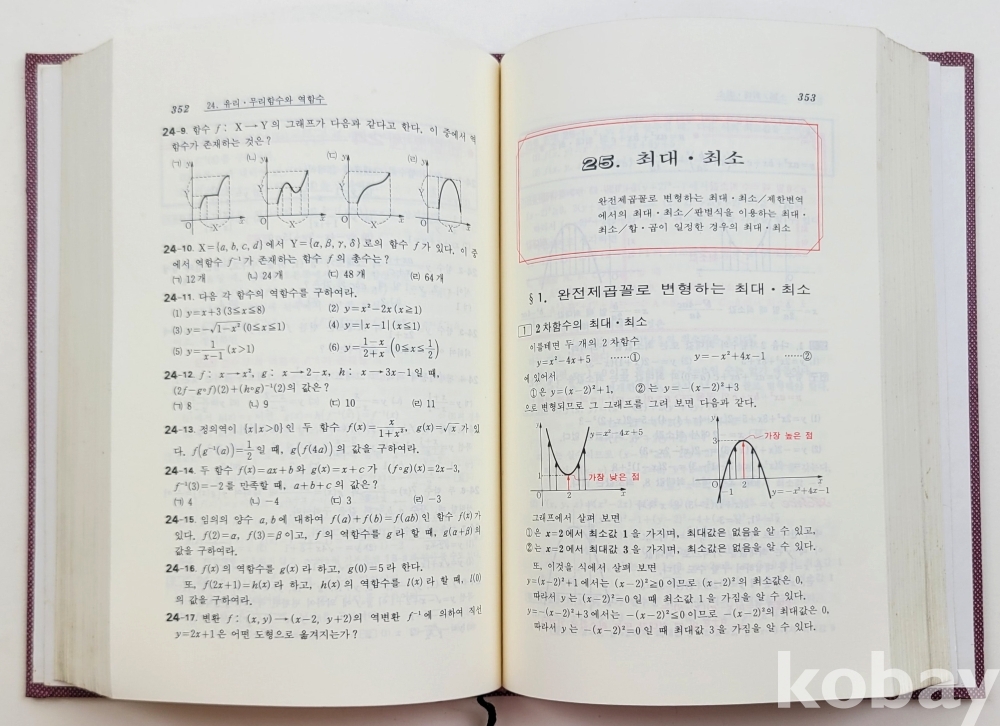 352 24. 유리·무리함수와 역함수
24-9. 함수 f : X → Y의 그래프가 다음과 같다고 한다. 이 중에서 역
함수가 존재하는 것은?
(ㄱ) y (ㄴ) y (ㄷ) y (ㄹ) y
Y Y Y Y
O X x O X x O X x O X x
24-10. X={a, b, c, d}에서 Y={α, β, γ, δ}로의 함수 f가 있다. 이 중
에서 역함수 f⁻¹가 존재하는 함수 f의 총수는?
(ㄱ) 12개 (ㄴ) 24개 (ㄷ) 48개 (ㄹ) 64개
24-11. 다음 각 함수의 역함수를 구하여라.
(1) y=x+3 (3≤x≤8) (2) y=x²-2x (x≥1)
(3) y=-√(1-x²) (0≤x≤1) (4) y=|x-1| (x≤1)
(5) y=1/(x-1) (x>1) (6) y=(1-x)/(2+x) (0≤x≤1/2)
24-12. f : x → x², g : x → 2-x, h : x → 3x-1일 때,
(2f-g∘f)(2)+(h∘g)⁻¹(2)의 값은?
(ㄱ) 8 (ㄴ) 9 (ㄷ) 10 (ㄹ) 11
24-13. 정의역이 {x|x>0}인 두 함수 f(x)=x/(1+x²), g(x)=√x가 있
다. f(g⁻¹(a))=1/2일 때, g(f(4a))의 값을 구하여라.
24-14. 두 함수 f(x)=ax+b와 g(x)=x+c가 (f∘g)(x)=2x-3,
f⁻¹(3)=-2를 만족할 때, a+b+c의 값은?
(ㄱ) 4 (ㄴ) -4 (ㄷ) 3 (ㄹ) -3
24-15. 임의의 양수 a, b에 대하여 f(a)+f(b)=f(ab)인 함수 f(x)가
있다. f(2)=α, f(3)=β이고, f의 역함수를 g라 할 때, g(α+β)의
값을 구하여라.
24-16. f(x)의 역함수를 g(x)라 하고, g(0)=5라 한다.
또, f(2x+1)=h(x)라 하고, h(x)의 역함수를 l(x)라 할 때, l(0)
의 값을 구하여라.
24-17. 변환 f : (x, y) → (x-2, y+2)의 역변환 f⁻¹에 의하여 직선
y=2x+1은 어떤 도형으로 옮겨지는가?
353
25. 최대·최소
완전제곱꼴로 변형하는 최대·최소/제한변역
에서의 최대·최소/판별식을 이용하는 최대·
최소/합·곱이 일정한 경우의 최대·최소
§1. 완전제곱꼴로 변형하는 최대·최소
1 2차함수의 최대·최소
이를테면 두 개의 2차함수
y=x²-4x+5 ······① y=-x²+4x-1 ······②
에 있어서
①은 y=(x-2)²+1, ②는 y=-(x-2)²+3
으로 변형되므로 그 그래프를 그려 보면 다음과 같다.
y y=x²-4x+5 1 가장 낮은 점 O 2 x
y 3 가장 높은 점 O 1 2 x y=-x²+4x-1
그래프에서 살펴 보면
①은 x=2에서 최소값 1을 가지며, 최대값은 없음을 알 수 있고,
②는 x=2에서 최대값 3을 가지며, 최소값은 없음을 알 수 있다.
또, 이것을 식에서 살펴 보면
y=(x-2)²+1에서는 (x-2)²≥0이므로 (x-2)²의 최소값은 0,
따라서 y는 (x-2)²=0일 때 최소값 1을 가짐을 알 수 있다.
y=-(x-2)²+3에서는 -(x-2)²≤0이므로 -(x-2)²의 최대값은 0,
따라서 y는 -(x-2)²=0일 때 최대값 3을 가짐을 알 수 있다.
kobay